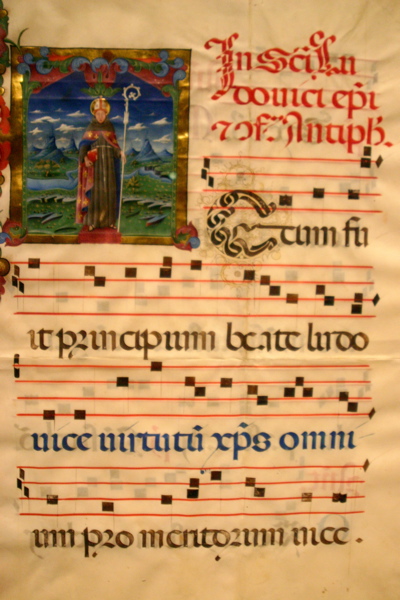 In Sc̄i Lu
douici ep̄i
⁊ cōf. Antiph.
Tecum fu
it principium beate ludo
uice uirtutū xp̄s omni
um pro meritorum uice .